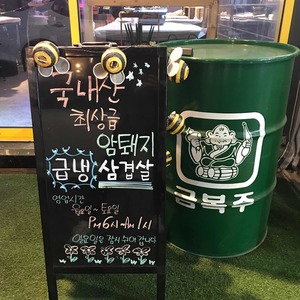 국내산
최상급
암퇘지
급냉 삼겹살
영업시간
월요일~토요일
PM6시~AM1시
일요일은 쉽니다
금복주